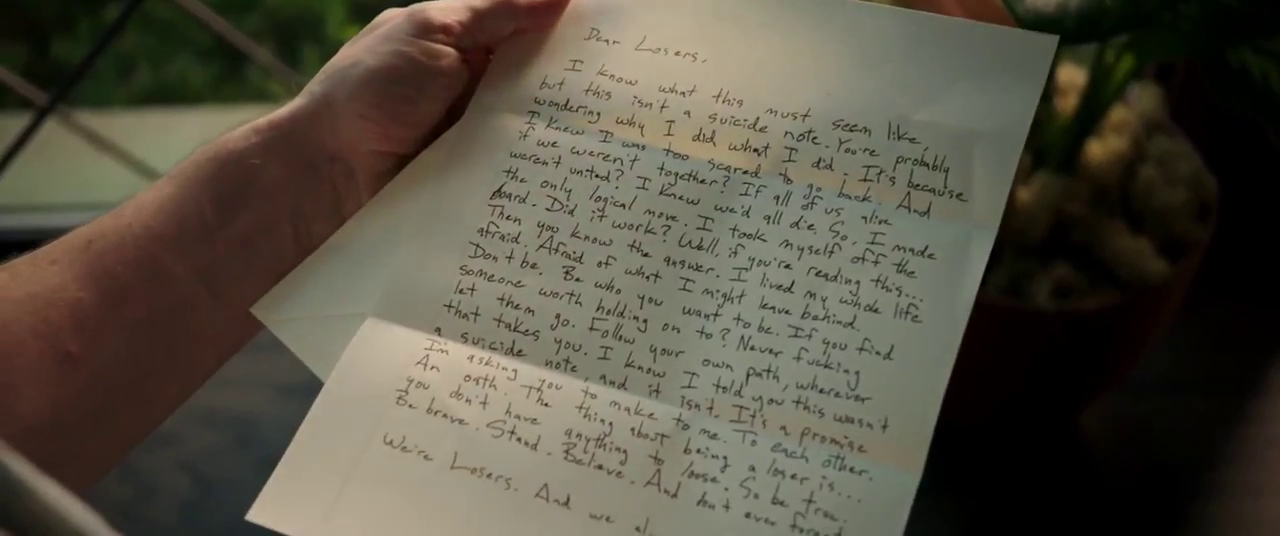 Dear Losers,
I know what this must seem like,
but this isn't a suicide note. You're probably
wondering why I did what I did. It's because
I knew I was too scared to go back. And
if we weren't together? If all of us alive
weren't united? I knew we'd all die. So, I made
the only logical move. I took myself off the
board. Did it work? Well, if you're reading this...
Then you know the answer. I lived my whole life
afraid. Afraid of what I might leave behind.
Don't be. Be who you want to be. If you find
someone worth holding on to? Never fucking
let them go. Follow your own path, wherever
that takes you. I know I told you this wasn't
a suicide note, and it isn't. It's a promise
I'm asking you to make to me. To each other.
An oath. The thing about being a loser is...
you don't have anything to loose. So be true.
Be brave. Stand. Believe. And don't ever forget
We're Losers. And we